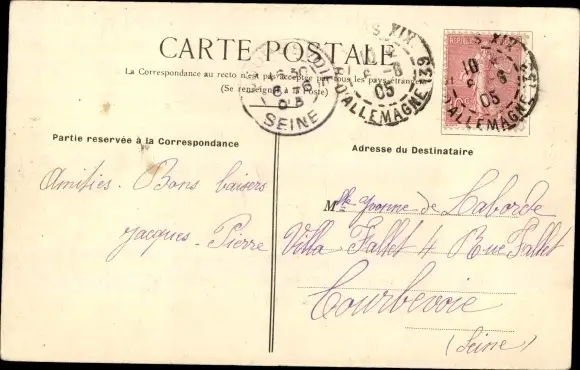 CARTE POSTALE
La Correspondance au recto n'est pas acceptée par tous les pays étrangers
(Se renseigner à la Poste)
S XIX
10
6
05
R. D'ALLEMAGNE 139
S XIX
10
6
05
D'ALLEMAGNE 139
SEINE
Partie reservée à la Correspondance
Amitiés. Bons baisers
Jacques. Pierre
Adresse du Destinataire
Mlle Yvonne de Laborde
Villa Fallet 4 Rue Fallet
Courbevoie
(Seine)